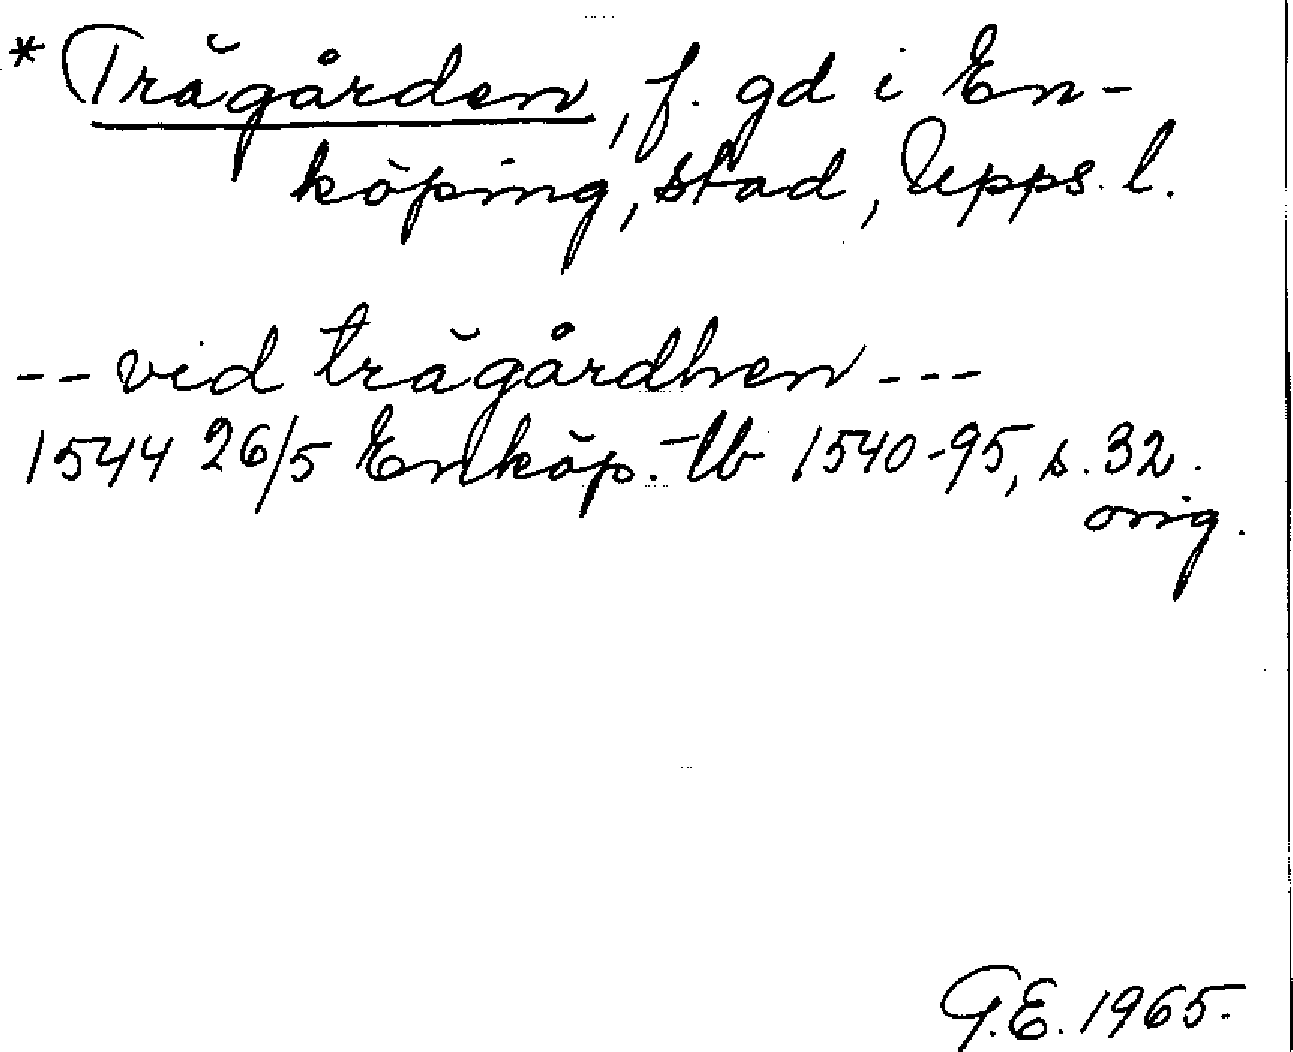 *Trägården, f. gd i En-
köping, stad, Upps. l.
-- vid trägårdhen ---
1544 26/5 Enköp. tb 1540-95, s. 32.
orig.
G.E. 1965.